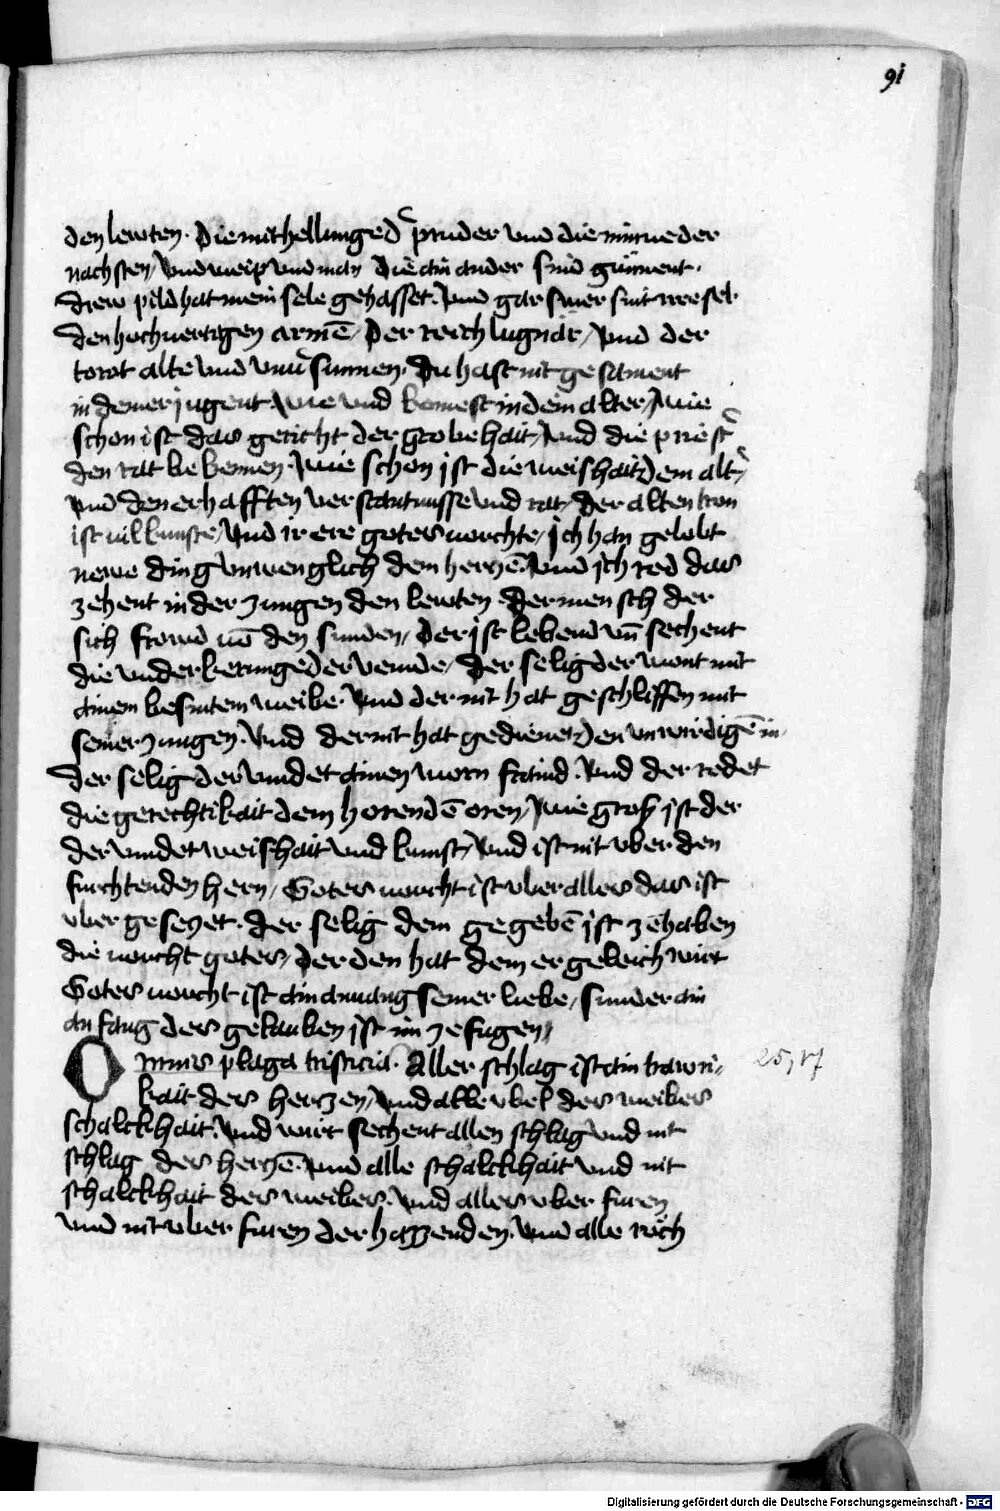 91
den lewten. Die mithellunge d' pruder vnd die minne der
nachsten, vnd weip vnd man die ain ander sind günnent.
drew pild hat mein sele gehasset. vnd gar swer sint irre sel
den hochuertigen armē, der reich lugnär, vnd der
torot alte vnd vnu'sunnen. Du hast nit gesament
in deiner jugent. wie vnd komest in dein alter, wie
schon ist das gericht der grobehait, vnd die priest'
den rat bekennen. wie schon ist die weishait dem alt',
vnd den erhafften verstantnusse vnd rat, der alten kron
ist uil kunste, vnd ir ere gotes uorchte, ich han gelobt
newe ding vnwenglich dem herczē. vnd ich red das
zehent in der zungen den lewten. der mensch der
sich frowd uō den sunden, der ist lebend vn̄ sechent
die vnderkerunge der veinde, der selig der wont mit
ainem besintem weibe. vnd der nit hat geschliffen mit
seiner zungen. vnd der nit hat gedienet den vnwirdigē im
der selig der vindet ainen warn fraind. vnd der redet
die gerechtikait dem horendē oren, wie gross ist der
der vindet weishait vnd kunst, vnd ist nit vber den
furchtenden hern, Gotes uorcht ist vber alles das ist
vber geseczet. der selig dem gegebē ist zehaben
die uorcht gotes, der den hat dem er geleich wirt
Gotes uorcht ist ain anuang seiner liebe, sunder ain
anfang des gelauben ist im zefugen,
Omnis plaga tristicia. Aller schlag ist ain trawri-
25,17
kait des herczen, vnd alle vbel des weibes
schalckhait. vnd wirt sechent allen schlag vnd nit
schlag des herczē. vnd alle schalckhait vnd nit
schalckhait des weibes. vnd alles vber furen
vnd nit vber furen der hazzenden. vnd alle räch
Digitalisierung gefördert durch die Deutsche Forschungsgemeinschaft - DFG